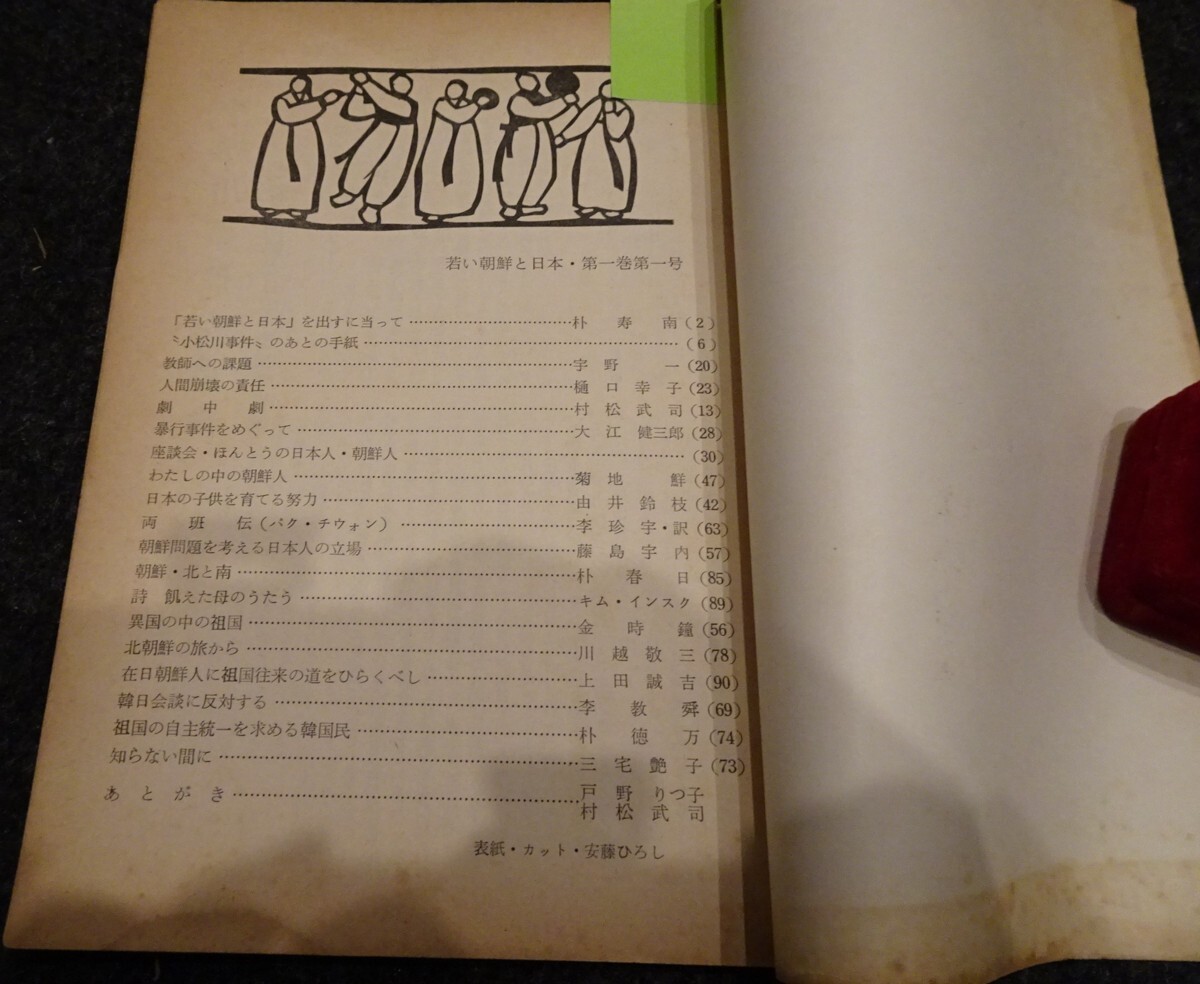 若い朝鮮と日本・第一巻第一号
「若い朝鮮と日本」を出すに当って……………………………朴寿南(2)
〝小松川事件〟のあとの手紙……………………………(6)
教師への課題……………………………宇野一(20)
人間崩壊の責任……………………………樋口幸子(23)
劇中劇……………………………村松武司(13)
暴行事件をめぐって……………………………大江健三郎(28)
座談会・ほんとうの日本人・朝鮮人……………………………(30)
わたしの中の朝鮮人……………………………菊地鮮(47)
日本の子供を育てる努力……………………………由井鈴枝(42)
両班伝(パク・チウォン)……………………………李珍宇・訳(63)
朝鮮問題を考える日本人の立場……………………………藤島宇内(57)
朝鮮・北と南……………………………朴春日(85)
詩 飢えた母のうたう……………………………キム・インスク(89)
異国の中の祖国……………………………金時鐘(56)
北朝鮮の旅から……………………………川越敬三(78)
在日朝鮮人に祖国往来の道をひらくべし……………………………上田誠吉(90)
韓日会談に反対する……………………………李教舜(69)
祖国の自主統一を求める韓国民……………………………朴徳万(74)
知らない間に……………………………三宅艶子(73)
あとがき……………………………戸野りつ子
村松武司
表紙・カット・安藤ひろし